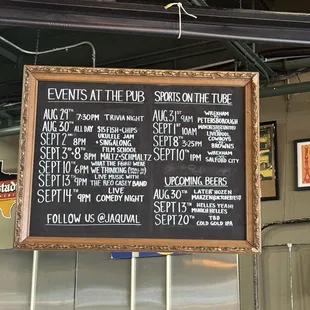 EVENTS AT THE PUB
AUG 29TH 7:30PM TRIVIA NIGHT
AUG 30TH ALL DAY $15 FISH+CHIPS
SEPT 2ND 8PM UKULELE JAM + SINGALONG
SEPT 3RD + 8 8PM FILM SCHOOL MALTZ-SCHMALTZ
SEPT 10TH 6PM WHAT THE WE THINKING
SEPT 13TH 9PM LIVE MUSIC WITH THE REO CASEY BAND
SEPT 14TH 9PM LIVE COMEDY NIGHT
FOLLOW US @JAQUVAL
SPORTS ON THE TUBE
AUG 31ST 9AM WREXHAM VS PETERBOROUGH
SEPT 1ST 10AM MANCHESTER UTD VS LIVERPOOL
SEPT 8TH COWBOYS VS BROWNS
SEPT 10TH WREXHAM VS SALFORD CITY
UPCOMING BEERS
AUG 30TH
SEPT 13TH HELLES YEAH!
SEPT 20TH TBD COLD GOLD IPA